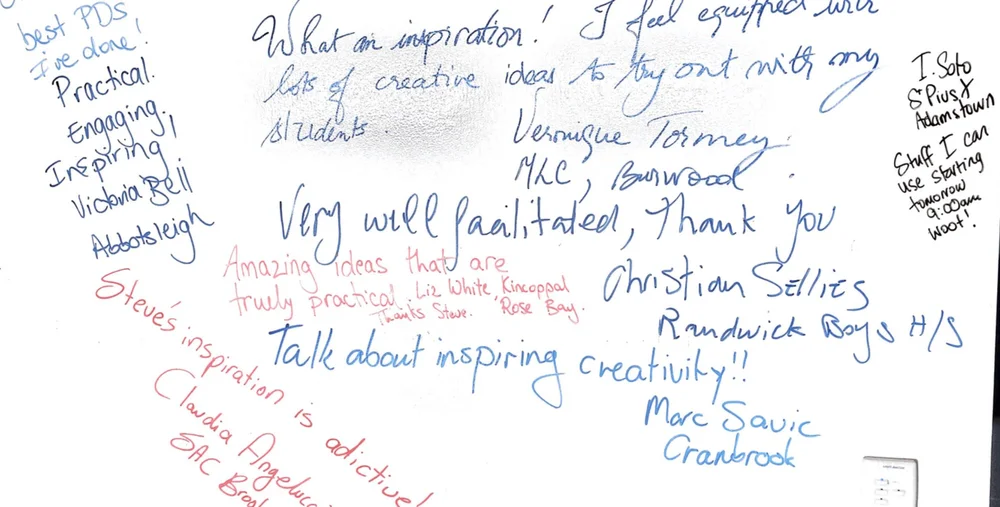 best PDs
I've done!
Practical.
Engaging.
Inspiring!
Victoria Bell
Abbotsleigh
What an inspiration! I feel equipped with
lots of creative ideas to try out with my
students.
Veronique Tormey.
MLC, Burwood.
I. Soto
St Pius X
Adamstown
Stuff I can
use starting
tomorrow
9:00am
woot!
Very well facilitated, Thank You
Christian Sellies
Randwick Boys H/S
Amazing ideas that are
truely practical. Liz White, Kincoppal
Thanks Steve. Rose Bay.
Steve's inspiration is adictive!
Claudia
SAC
Talk about inspiring creativity!!
Marc Savic
Cranbrook